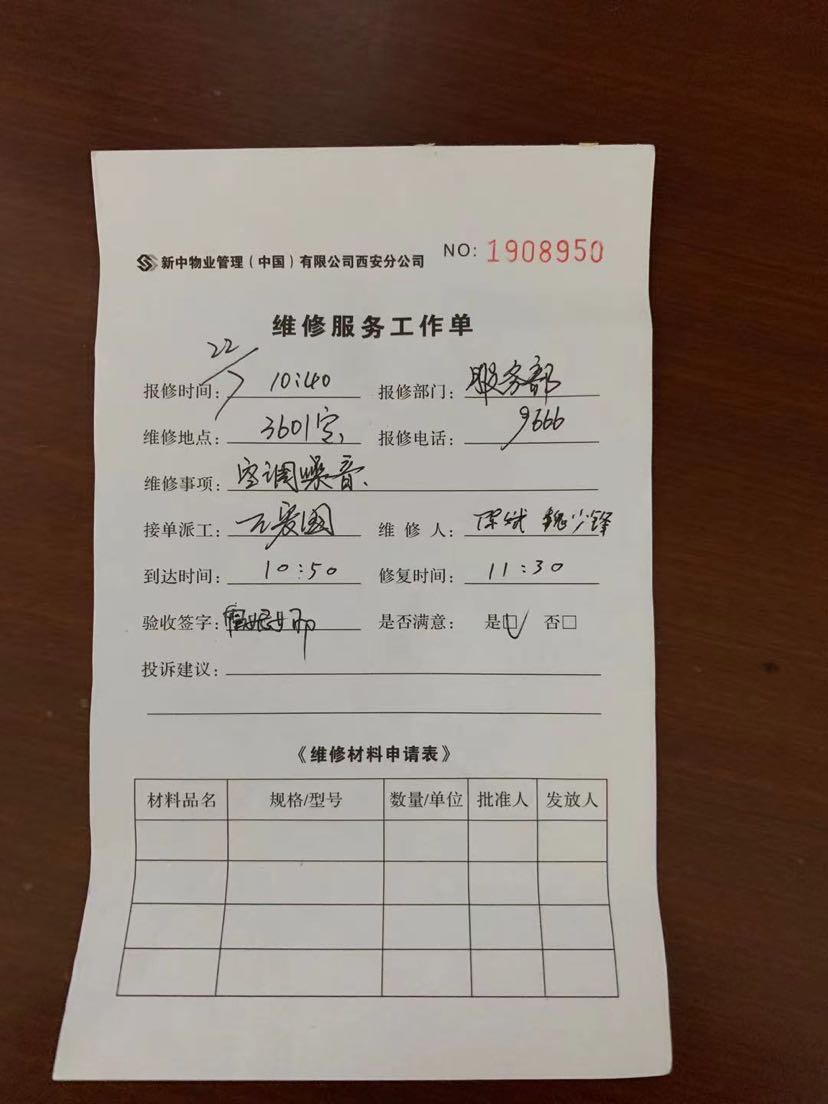 新中物业管理(中国)有限公司西安分公司 NO: 1908950
维修服务工作单
报修时间: 22/7 10:40 报修部门: 服务部
维修地点: 3601室 报修电话: 9666
维修事项: 空调噪音
接单派工: 王爱国 维修人: 魏少锋
到达时间: 10:50 修复时间: 11:30
验收签字: 是否满意: 是☑ 否□
投诉建议:
《维修材料申请表》
材料品名 规格/型号 数量/单位 批准人 发放人